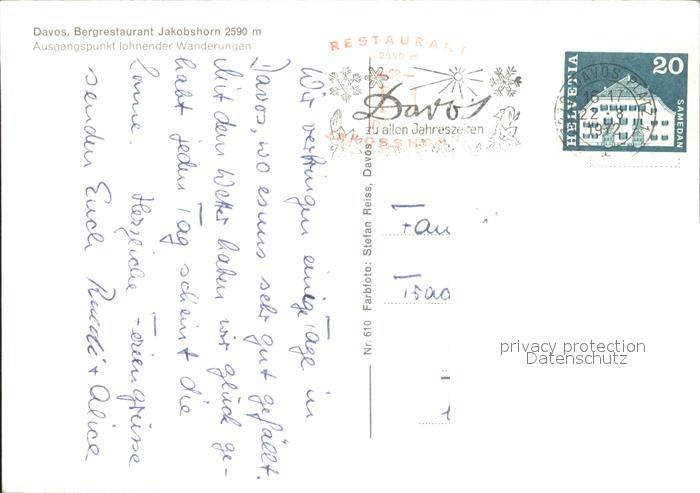 Davos. Bergrestaurant Jakobshorn 2590 m
Ausgangspunkt lohnender Wanderungen
RESTAURANT
2590 m
Davos
zu allen Jahreszeiten
JAKOBSHORN
DAVOS PLATZ
22.-8.
HELVETIA
20
SAMEDAN
Wir verbringen einige Tage in
Davos, wo es uns sehr gut gefällt.
Mit dem Wetter haben wir glück ge-
habt jeden Tag scheint die
Sonne. Herzliche Feriengrüsse
senden Euch Ruedi + Alice
Nr. 610 Farbfoto: Stefan Reiss, Davos
Fam
privacy protection
Datenschutz